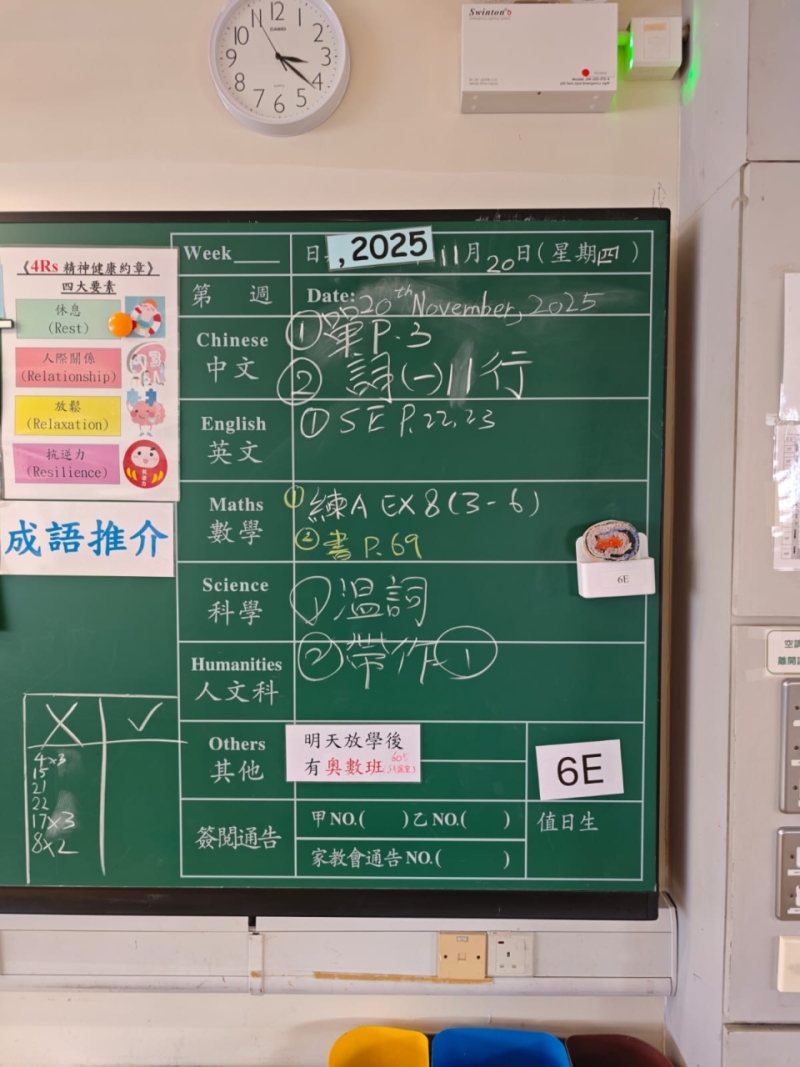 12
1
2
3
4
5
6
7
8
9
10
11
CASIO
Swinton
Week____
日
, 2025
11月20日(星期四)
第 週
Date: 20th November, 2025
《4Rs 精神健康約章》
四大要素
休息
(Rest)
人際關係
(Relationship)
放鬆
(Relaxation)
抗逆力
(Resilience)
成語推介
Chinese
中文
① 單 P.3
② 詞(一)11行
English
英文
① SE P.22,23
Maths
數學
① 練A EX 8 (3-6)
② 書 P.69
6E
Science
科學
① 溫詞
② 帶作①
Humanities
人文科
Others
其他
明天放學後
有奧數班
6E
簽閱通告
甲NO.( )乙NO.( )
家教會通告NO.( )
值日生
X ✓
4x3
15
21
22
17x3
8x2